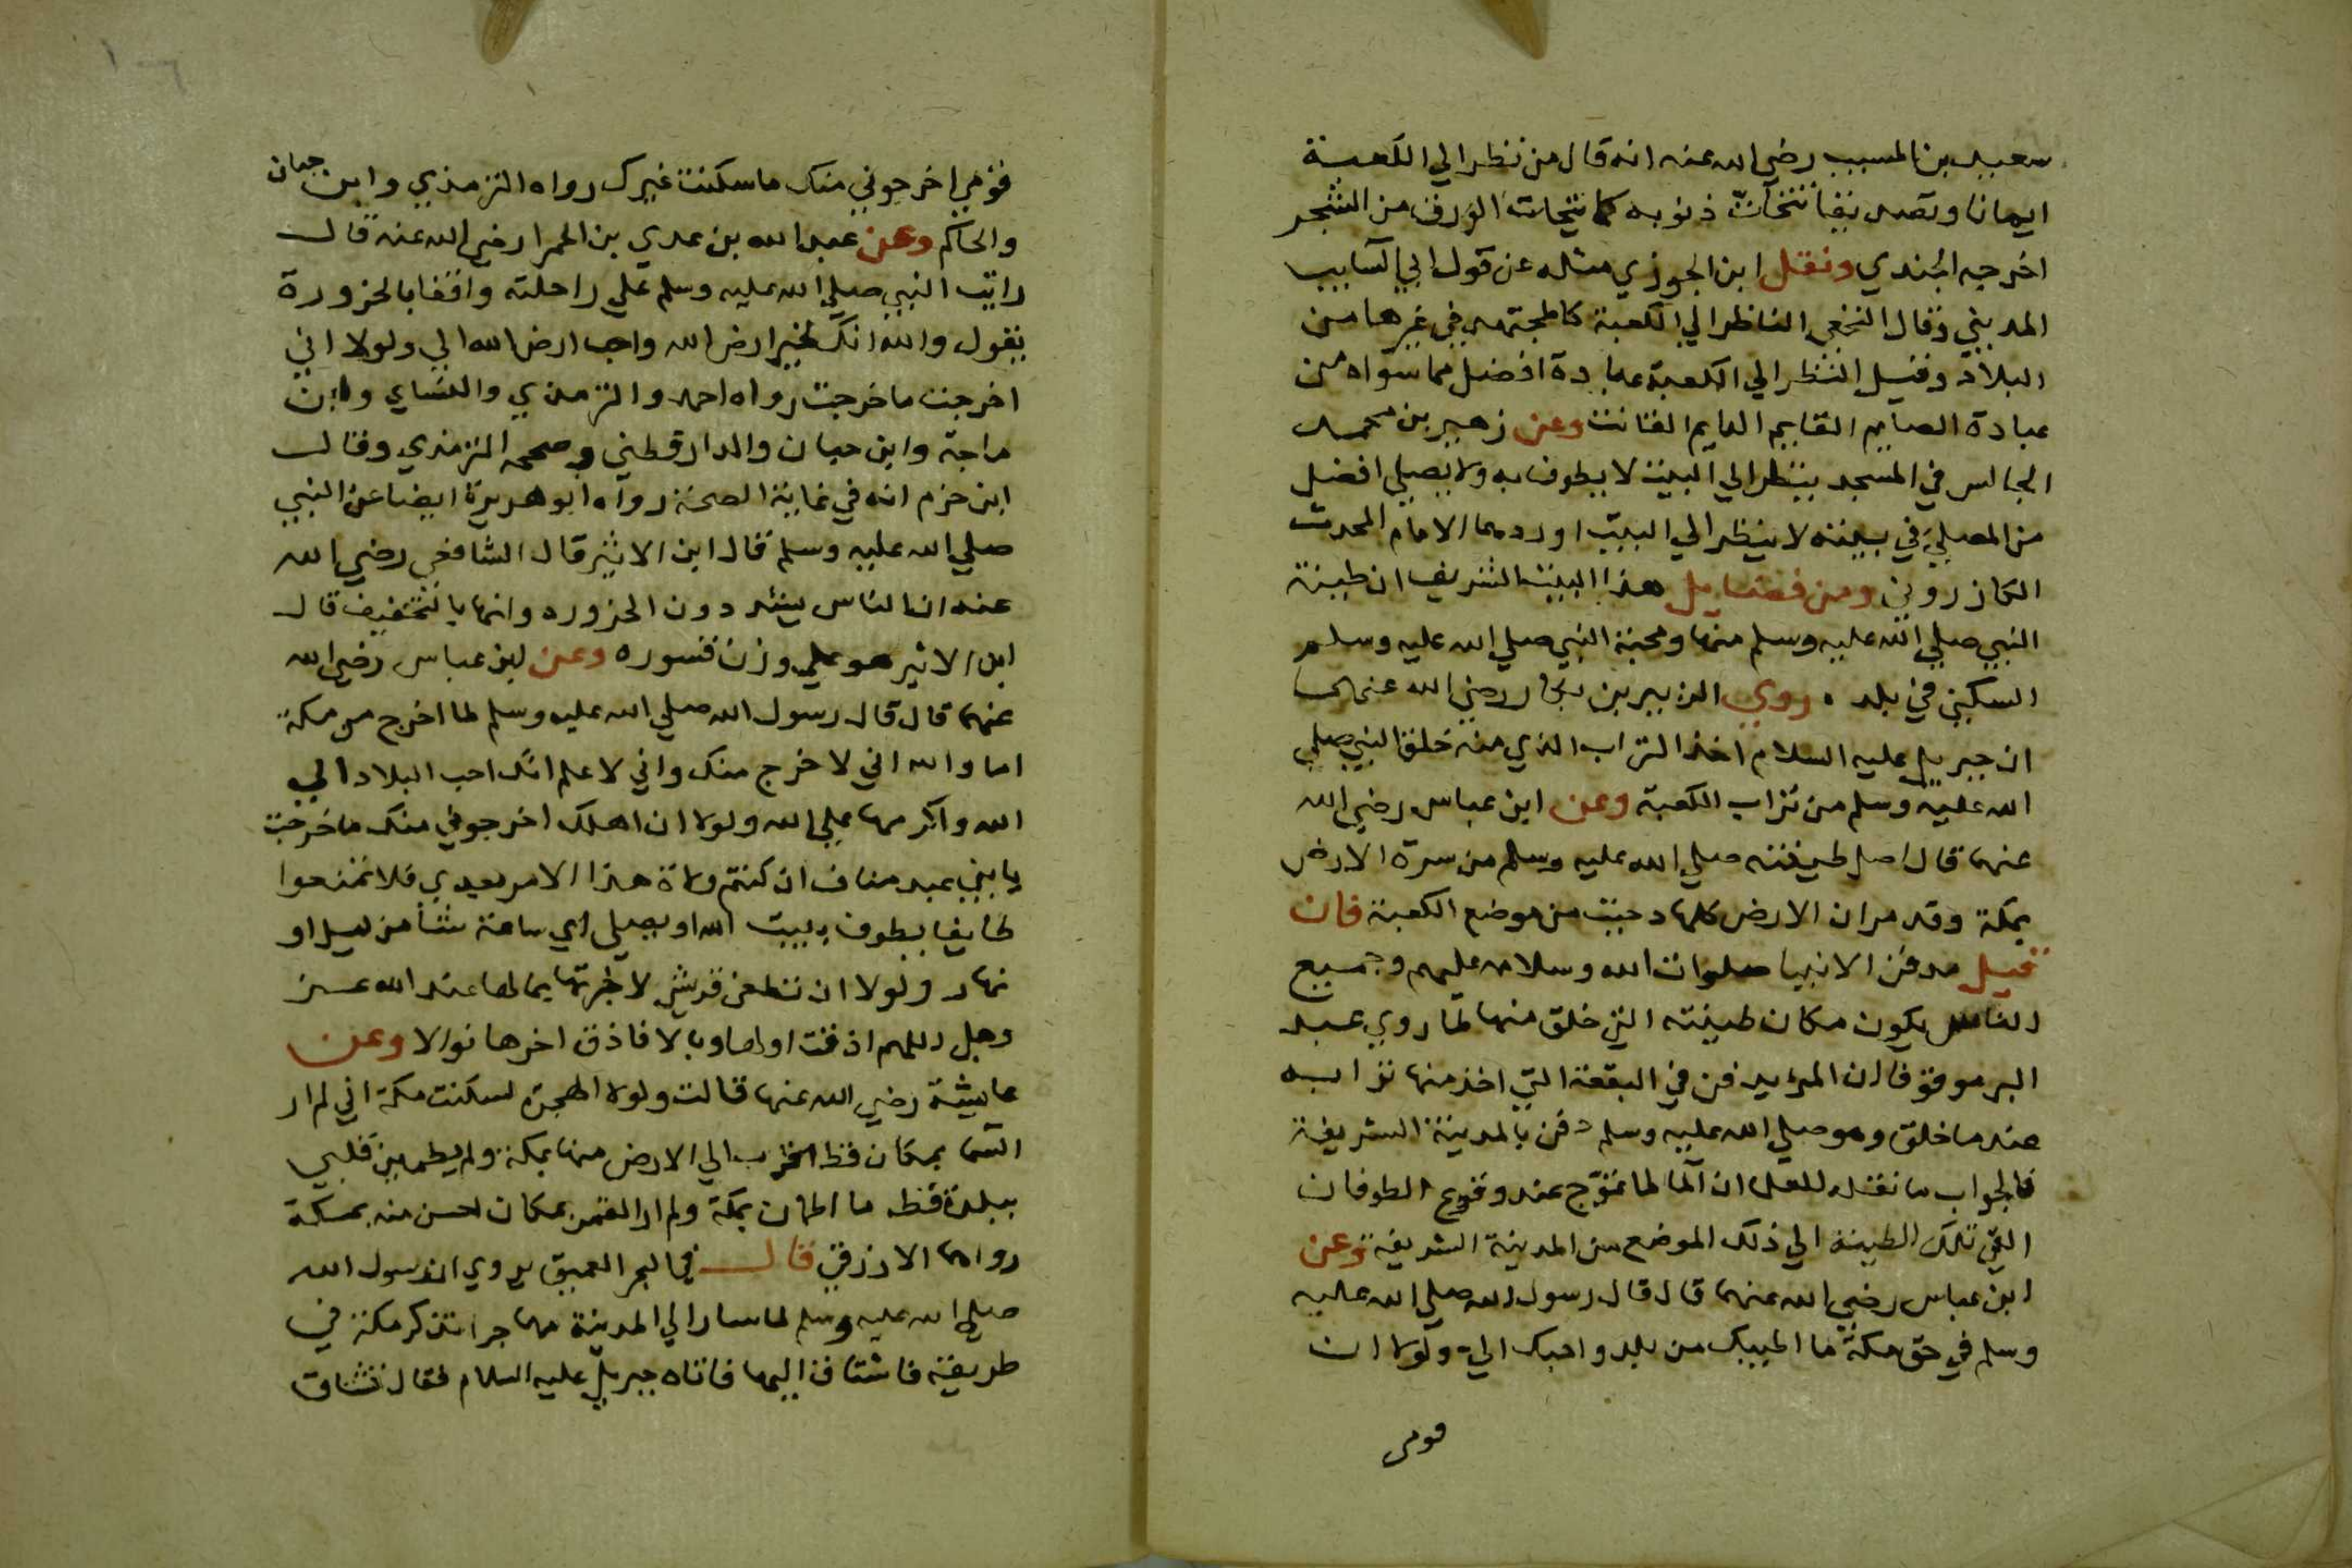 سعيد بن المسيب رضي الله عنه انه قال من نظر الي الكعبة
ايمانا وتصديقا تتحاتّ ذنوبه كما يتحات الورق من الشجر
اخرجه الجندي ونقل ابن الجوزي مثله عن قول ابي السايب
المديني وقال النخعي الناظر الي الكعبة كالمجتهد في غيرها من
البلاد وقيل النظر الي الكعبة عبادة افضل مما سواه من
عبادة الصايم القايم الدايم القانت وعن زهير بن محمد
الجالس في المسجد ينظر الي البيت لا يطوف به ولا يصلي افضل
من المصلي في بيته لا ينظر الي البيت اوردهما الامام المحدث
الكازروني ومن فضايل هذا البيت الشريف ان طينة
النبي صلي الله عليه وسلم منها ومحبة النبي صلي الله عليه وسلم
السكني في بلده روي الزبير بن بكار رضي الله عنهما
ان جبريل عليه السلام اخذ التراب الذي منه خلق النبي صلي
الله عليه وسلم من تراب الكعبة وعن ابن عباس رضي الله
عنهما قال اصل طينته صلي الله عليه وسلم من سرة الارض
بمكة وقد مر ان الارض كلها دحيت من موضع الكعبة فان
قيل مدفن الانبيا صلوات الله وسلامه عليهم وجميع
الناس يكون مكان طينته التي خلق منها لما روي عبد
البر موقوفا ان المرء يدفن في البقعة التي اخذ منها ترابه
عند ما خلق وهو صلي الله عليه وسلم دفن بالمدينة الشريفة
فالجواب ما نقله العلما ان الما لما تموّج عند وقوع الطوفان
القي تلك الطينة الي ذلك الموضع من المدينة الشريفة وعن
ابن عباس رضي الله عنهما قال قال رسول الله صلي الله عليه
وسلم في حق مكة ما اطيبك من بلد واحبك اليّ ولولا ان
قومي
قومي اخرجوني منك ما سكنت غيرك رواه الترمذي وابن حبان
والحاكم وعن عبد الله بن عدي بن الحمرا رضي الله عنه قال
رايت النبي صلي الله عليه وسلم علي راحلته واقفا بالحزورة
يقول والله انك لخير ارض الله واحب ارض الله الي ولولا اني
اخرجت ما خرجت رواه احمد والترمذي والنساي وابن
ماجة وابن حبان والدارقطني وصححه الترمذي وقال
ابن حزم انه في غاية الصحة رواه ابو هريرة ايضا عن النبي
صلي الله عليه وسلم قال ابن الاثير قال الشافعي رضي الله
عنه ان الناس يشددون الحزوره وانها بالتخفيف قال
ابن الاثير هو علي وزن قسوره وعن ابن عباس رضي الله
عنهما قال قال رسول الله صلي الله عليه وسلم لما اخرج من مكة
اما والله اني لاخرج منك واني لاعلم انك احب البلاد الي
الله واكرمها علي الله ولولا ان اهلك اخرجوني منك ما خرجت
يا بني عبد مناف ان كنتم ولاة هذا الامر بعدي فلا تمنعوا
طايفا يطوف ببيت الله او يصلي اي ساعة شا من ليل او
نهار ولولا ان تطغي قريش لاخبرتها بما لها عند الله عز
وجل اللهم اذقت اولها وبالا فاذق اخرها نوالا وعن
عايشة رضي الله عنها قالت ولولا الهجرة لسكنت مكة اني لم ار
السما بمكان قط اقرب الي الارض منها بمكة ولم يطمين قلبي
ببلدة قط ما اطمان بمكة ولم ار القمر بمكان احسن منه بمكة
رواهما الازرقي قال في البحر العميق يروي ان رسول الله
صلي الله عليه وسلم لما سار الي المدينة مهاجرا تذكر مكة في
طريقه فاشتاق اليها فاتاه جبريل عليه السلام فقال تشتاق